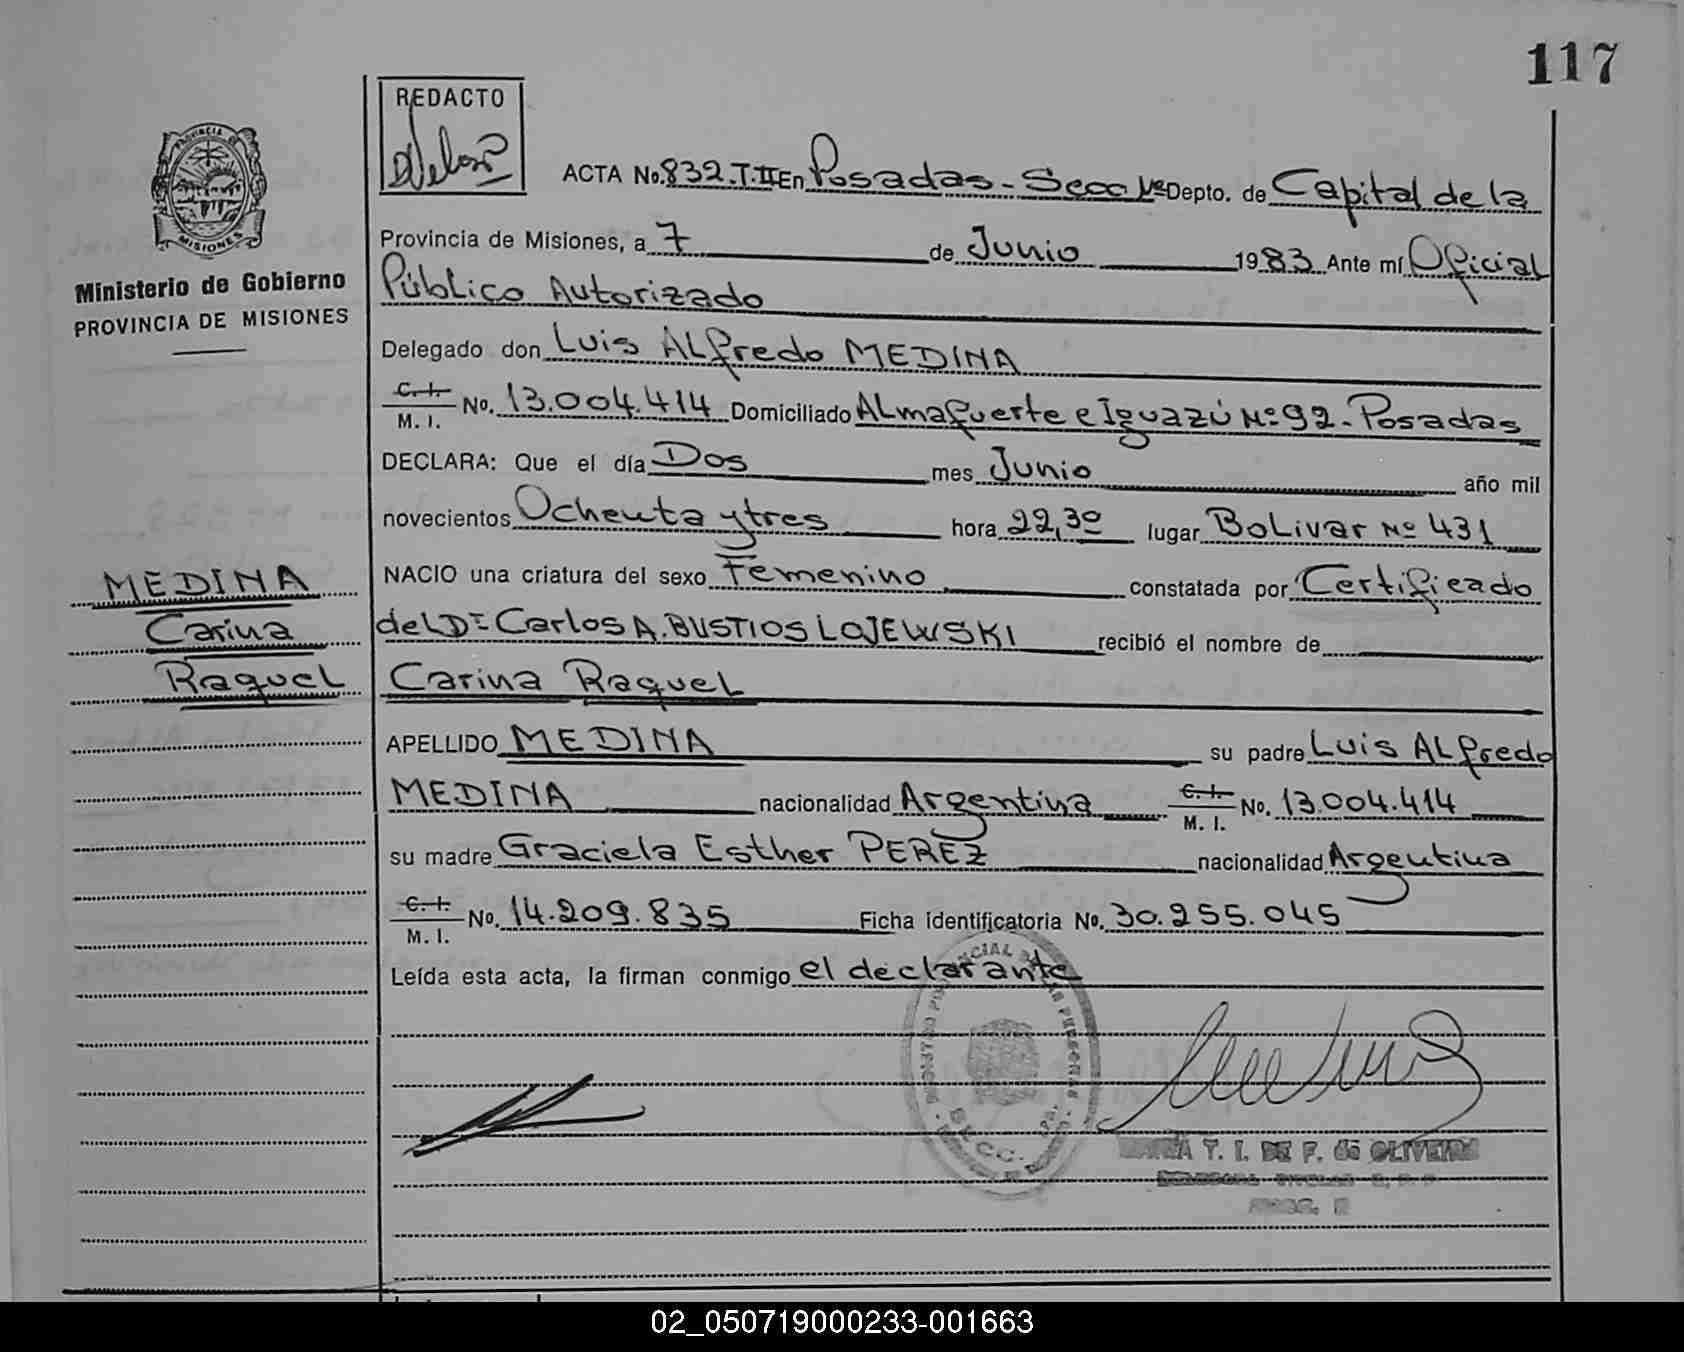 117
REDACTO
PROVINCIA DE
MISIONES
Ministerio de Gobierno
PROVINCIA DE MISIONES
ACTA No. 832.T.II En Posadas - Secc 1ª Depto. de Capital de la
Provincia de Misiones, a 7 de Junio 1983 Ante mí Oficial
Público Autorizado
Delegado don Luis ALfredo MEDINA
C. I. M. I. No. 13.004.414 Domiciliado ALmafuerte e Iguazú Nº 92 - Posadas
DECLARA: Que el día Dos mes Junio año mil
novecientos Ochenta y tres hora 22,30 lugar BoLivar Nº 431
NACIO una criatura del sexo Femenino constatada por Certificado
deL Dr Carlos A. BUSTIOS LOJEWSKI recibió el nombre de
Carina RaqueL
MEDINA
Carina
RaqueL
APELLIDO MEDINA su padre Luis ALfredo
MEDINA nacionalidad Argentina C. I. M. I. No. 13.004.414
su madre Graciela Esther PEREZ nacionalidad Argentina
C. I. M. I. No. 14.209.835 Ficha identificatoria No. 30.255.045
Leída esta acta, la firman conmigo el declarante
T. I. DE F. de OLIVEIRA
02_050719000233-001663